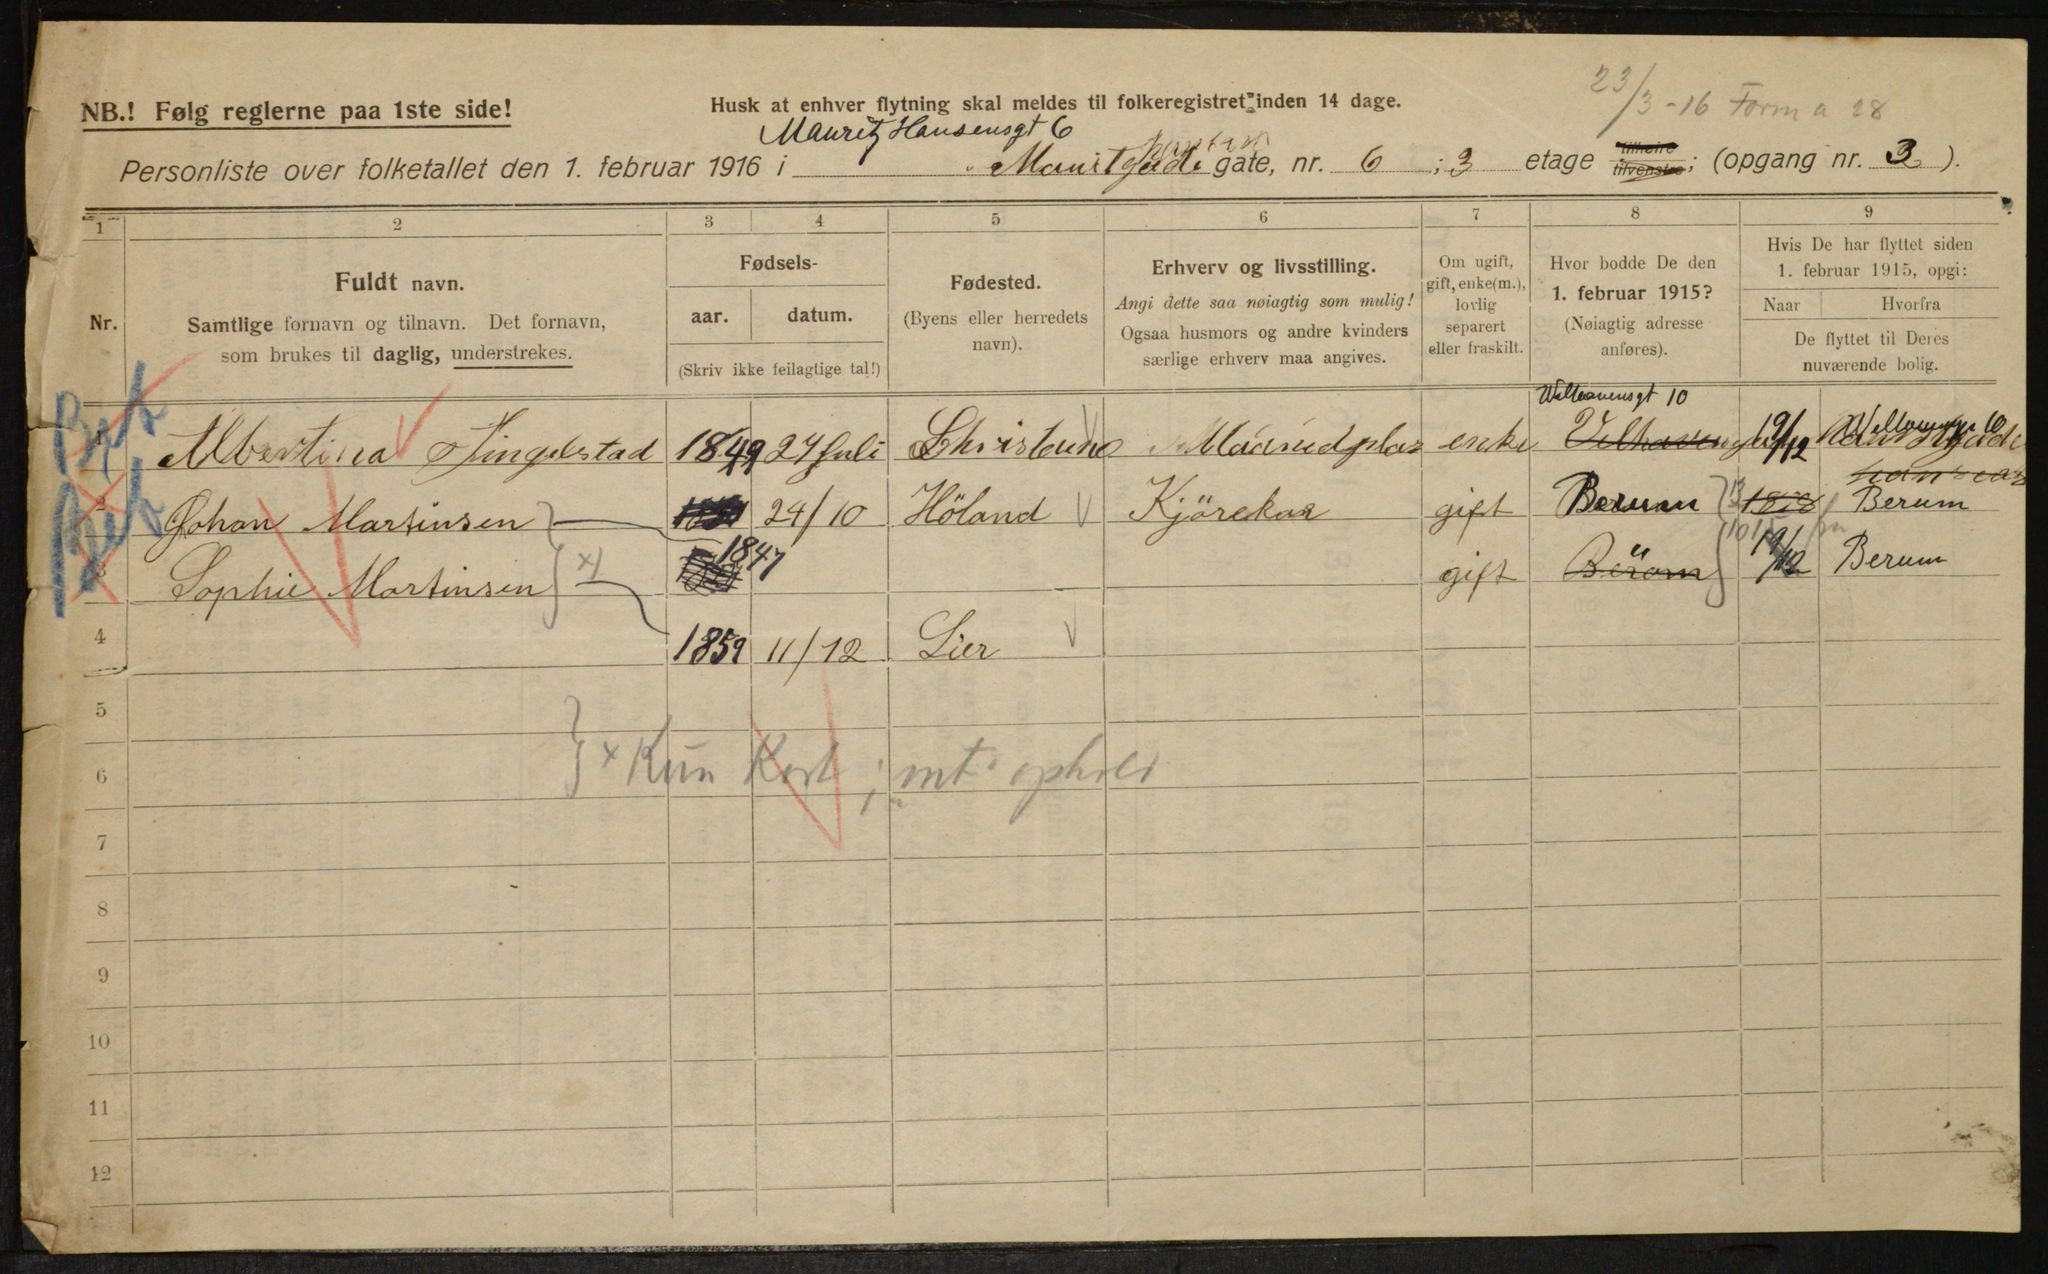 23/3-16 Form a 28
NB.! Følg reglerne paa 1ste side!
Husk at enhver flytning skal meldes til folkeregistret inden 14 dage.
Mauritz Hansensgt 6
Personliste over folketallet den 1. februar 1916 i gate, nr. 6 ; 3 etage tilhøire tilvenstre; (opgang nr. 3 ).
1 2 3 4 5 6 7 8 9
Nr.
Fuldt navn.
Samtlige fornavn og tilnavn. Det fornavn,
som brukes til daglig, understrekes.
Fødsels-
aar. datum.
(Skriv ikke feilagtige tal!)
Fødested.
(Byens eller herredets
navn).
Erhverv og livsstilling.
Angi dette saa nøiagtig som mulig!
Ogsaa husmors og andre kvinders
særlige erhverv maa angives.
Om ugift,
gift, enke(m.),
lovlig
separert
eller fraskilt.
Hvor bodde De den
1. februar 1915?
(Nøiagtig adresse
anføres).
Hvis De har flyttet siden
1. februar 1915, opgi:
Naar Hvorfra
De flyttet til Deres
nuværende bolig.
1 Albertina Hingelstad 1849 27 Juli enke 19/12
2 Johan Martinsen 24/10 Höland Kjörekar gift Berum Berum
1847
3 Sophie Martinsen gift Bërom 19/12 Berum
4 1859 11/12 Lier
5
6 x Kun Kort ; mt. ophold
7
8
9
10
11
12